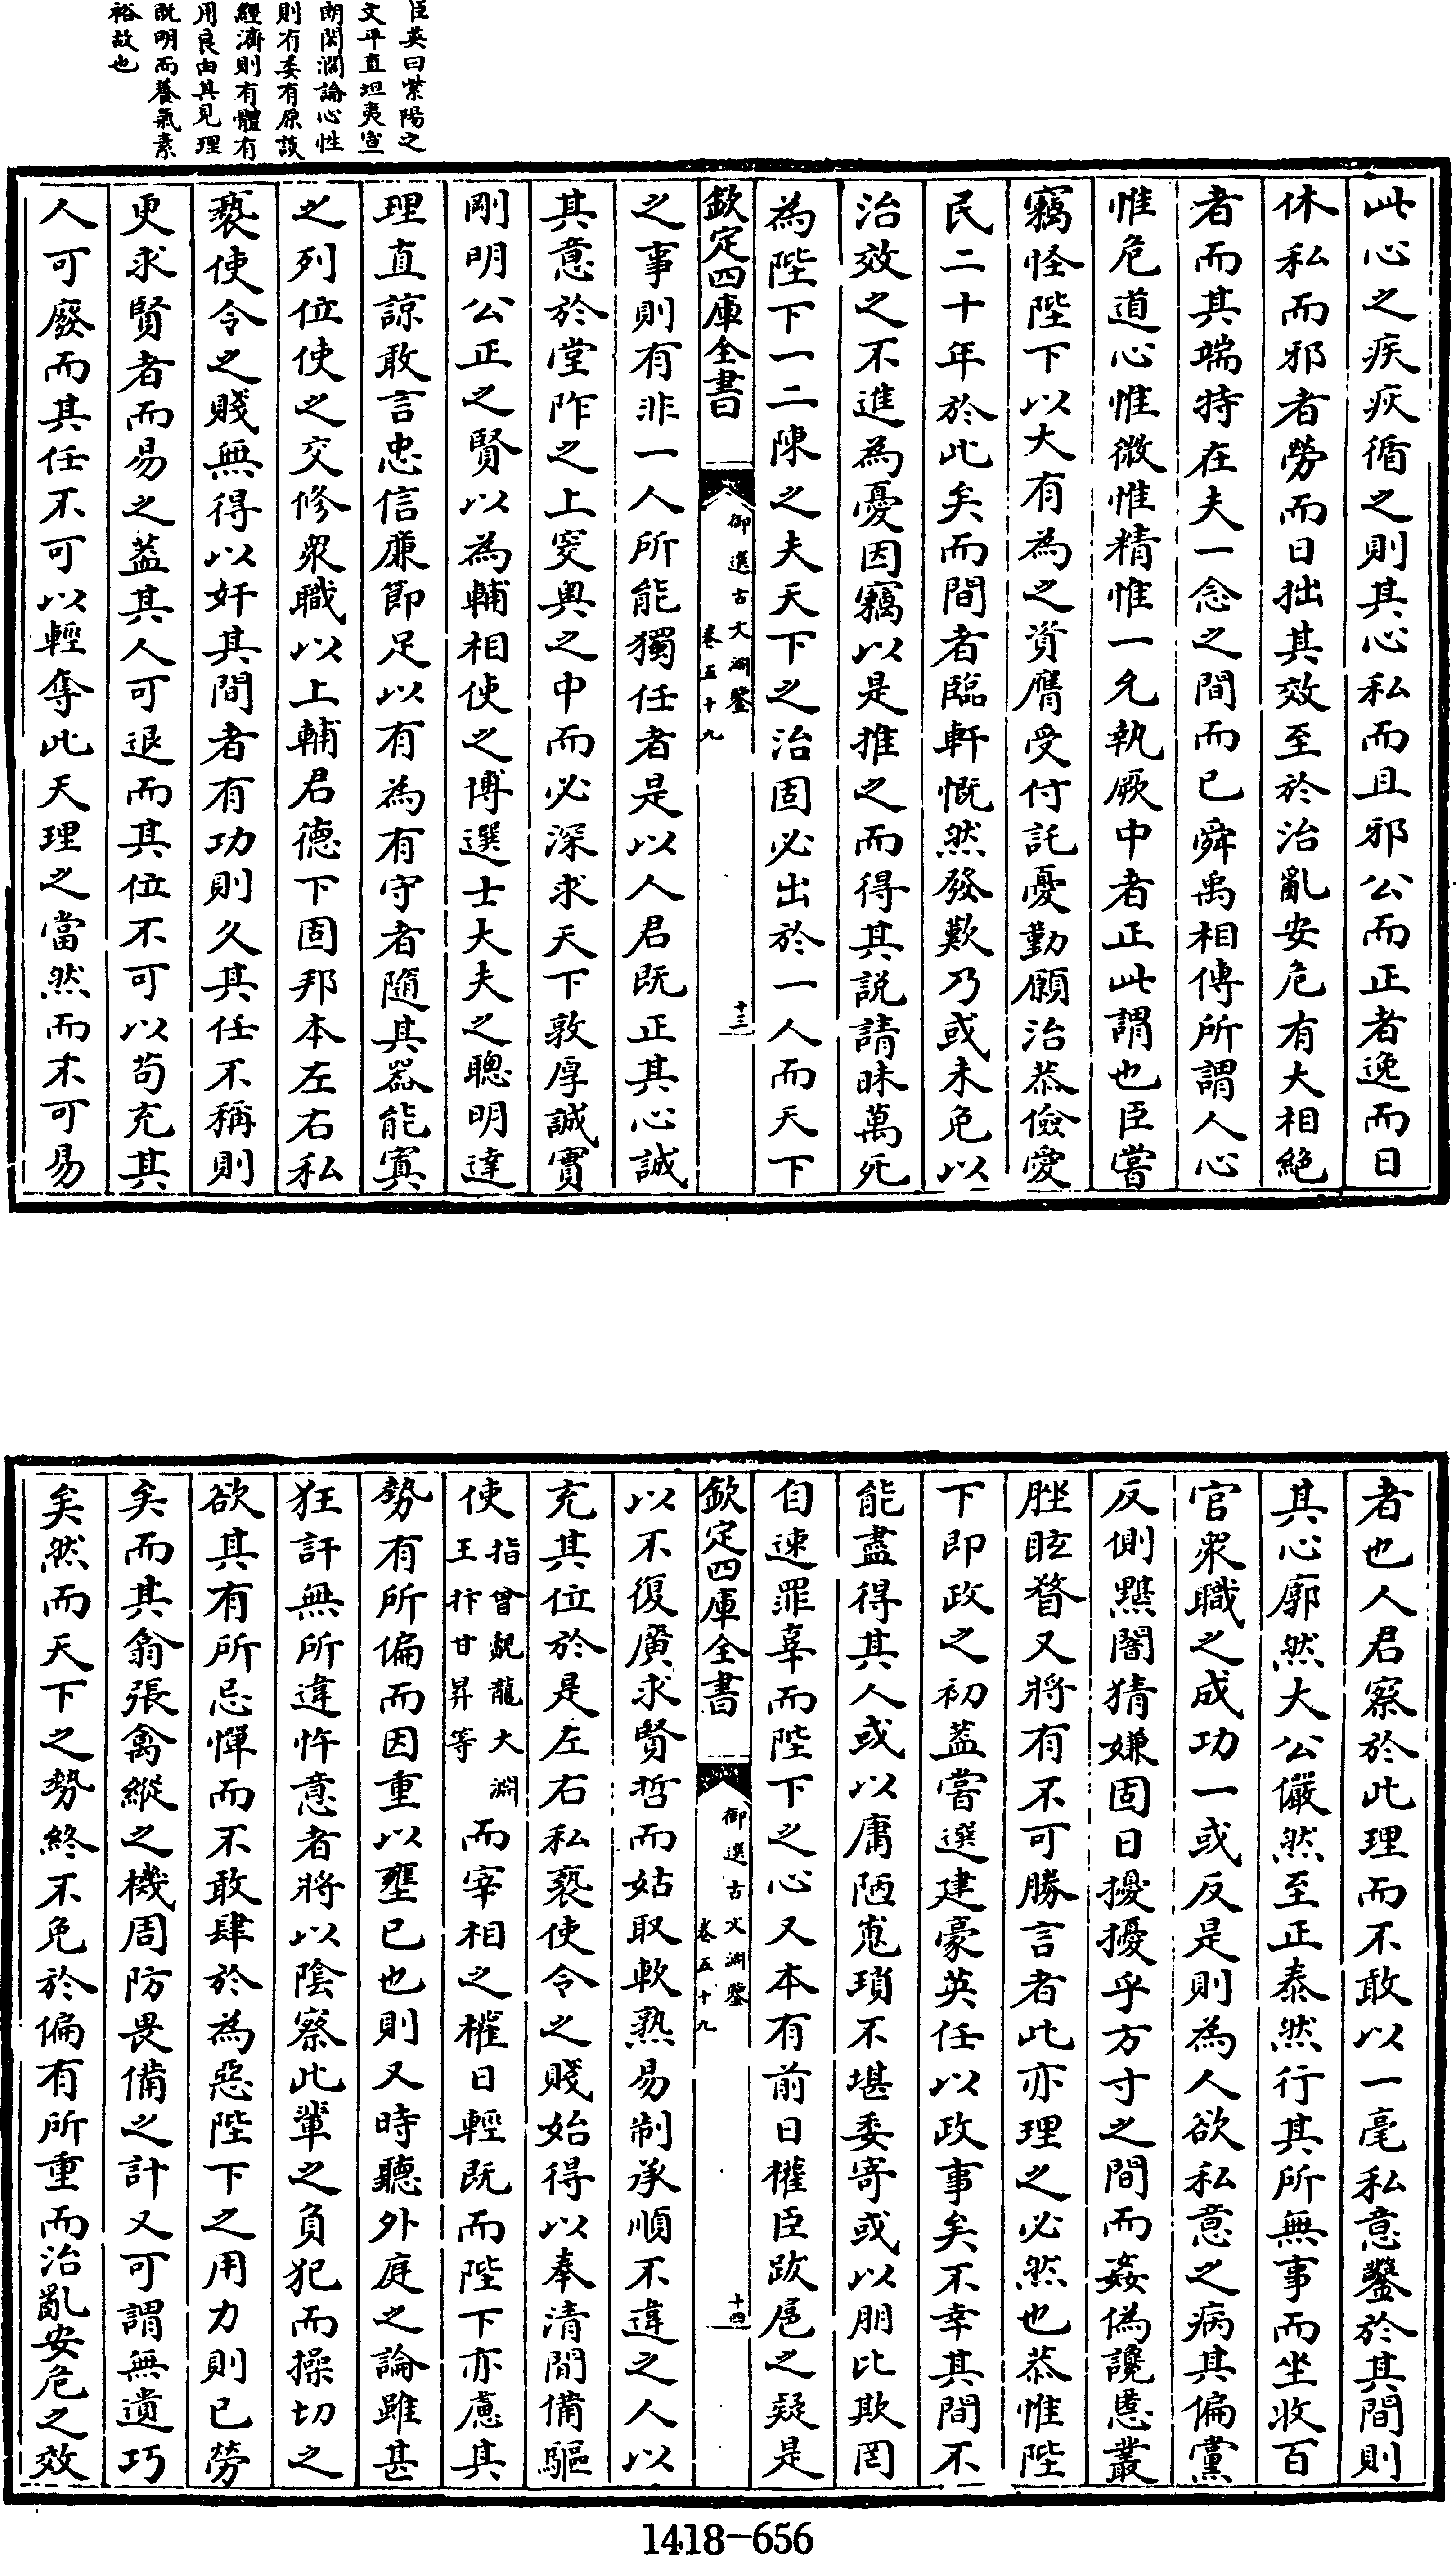 臣英曰紫陽之
文平直坦夷宣
朗閎濶論心性
則有委有原談
經濟則有體有
用良由其見理
既明而養氣素
裕故也
此心之疾疢循之則其心私而且邪公而正者逸而日
休私而邪者勞而日拙其效至於治亂安危有大相絶
者而其端特在夫一念之間而已舜禹相傳所謂人心
惟危道心惟微惟精惟一允執厥中者正此謂也臣嘗
竊怪陛下以大有為之資膺受付託憂勤願治恭儉愛
民二十年於此矣而間者臨軒慨然發歎乃或未免以
治效之不進為憂因竊以是推之而得其説請昧萬死
為陛下一二陳之夫天下之治固必出於一人而天下
欽定四庫全書
御選古文淵鑒
卷五十九
十三
之事則有非一人所能獨任者是以人君既正其心誠
其意於堂阼之上突奥之中而必深求天下敦厚誠實
剛明公正之賢以為輔相使之博選士大夫之聰明達
理直諒敢言忠信廉節足以有為有守者隨其器能寘
之列位使之交修衆職以上輔君德下固邦本左右私
褻使令之賤無得以奸其間者有功則久其任不稱則
更求賢者而易之蓋其人可退而其位不可以苟充其
人可廢而其任不可以輕奪此天理之當然而不可易
者也人君察於此理而不敢以一毫私意鑿於其間則
其心廓然大公儼然至正泰然行其所無事而坐收百
官衆職之成功一或反是則為人欲私意之病其偏黨
反側黮闇猜嫌固日擾擾乎方寸之間而姦偽讒慝叢
脞眩瞀又將有不可勝言者此亦理之必然也恭惟陛
下即政之初蓋嘗選建豪英任以政事矣不幸其間不
能盡得其人或以庸陋嵬瑣不堪委寄或以朋比欺罔
自速罪辜而陛下之心又本有前日權臣跋扈之疑是
欽定四庫全書
御選古文淵鑒
卷五十九
十四
以不復廣求賢哲而姑取軟熟易制承順不違之人以
充其位於是左右私褻使令之賤始得以奉清閒備驅
使指曾覿龍大淵王抃甘昇等而宰相之權日輕既而陛下亦慮其
勢有所偏而因重以壅已也則又時聽外庭之論雖甚
狂訐無所違忤意者將以陰察此輩之負犯而操切之
欲其有所忌憚而不敢肆於為惡陛下之用力則已勞
矣而其翕張禽縱之機周防畏備之計又可謂無遺巧
矣然而天下之勢終不免於偏有所重而治亂安危之效
1418-656